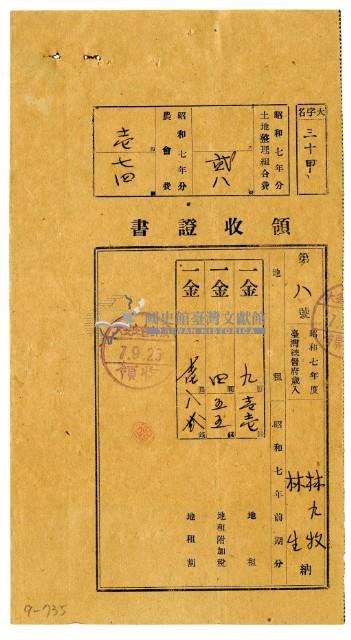 大字名
三十甲
昭和七年分
土地整理組合費
弐八
昭和七年分
農會費
壱七四
領收證書
第八號
昭和七年度
臺灣總督府歲入
林九牧
林生
納
地租
昭和七年前期分
一金
九
壱
地租
一金
四五五
地租附加稅
一金
八
地租割
7.9.23
領收
國史館臺灣文獻館
TAIWAN HISTORICA
9-735